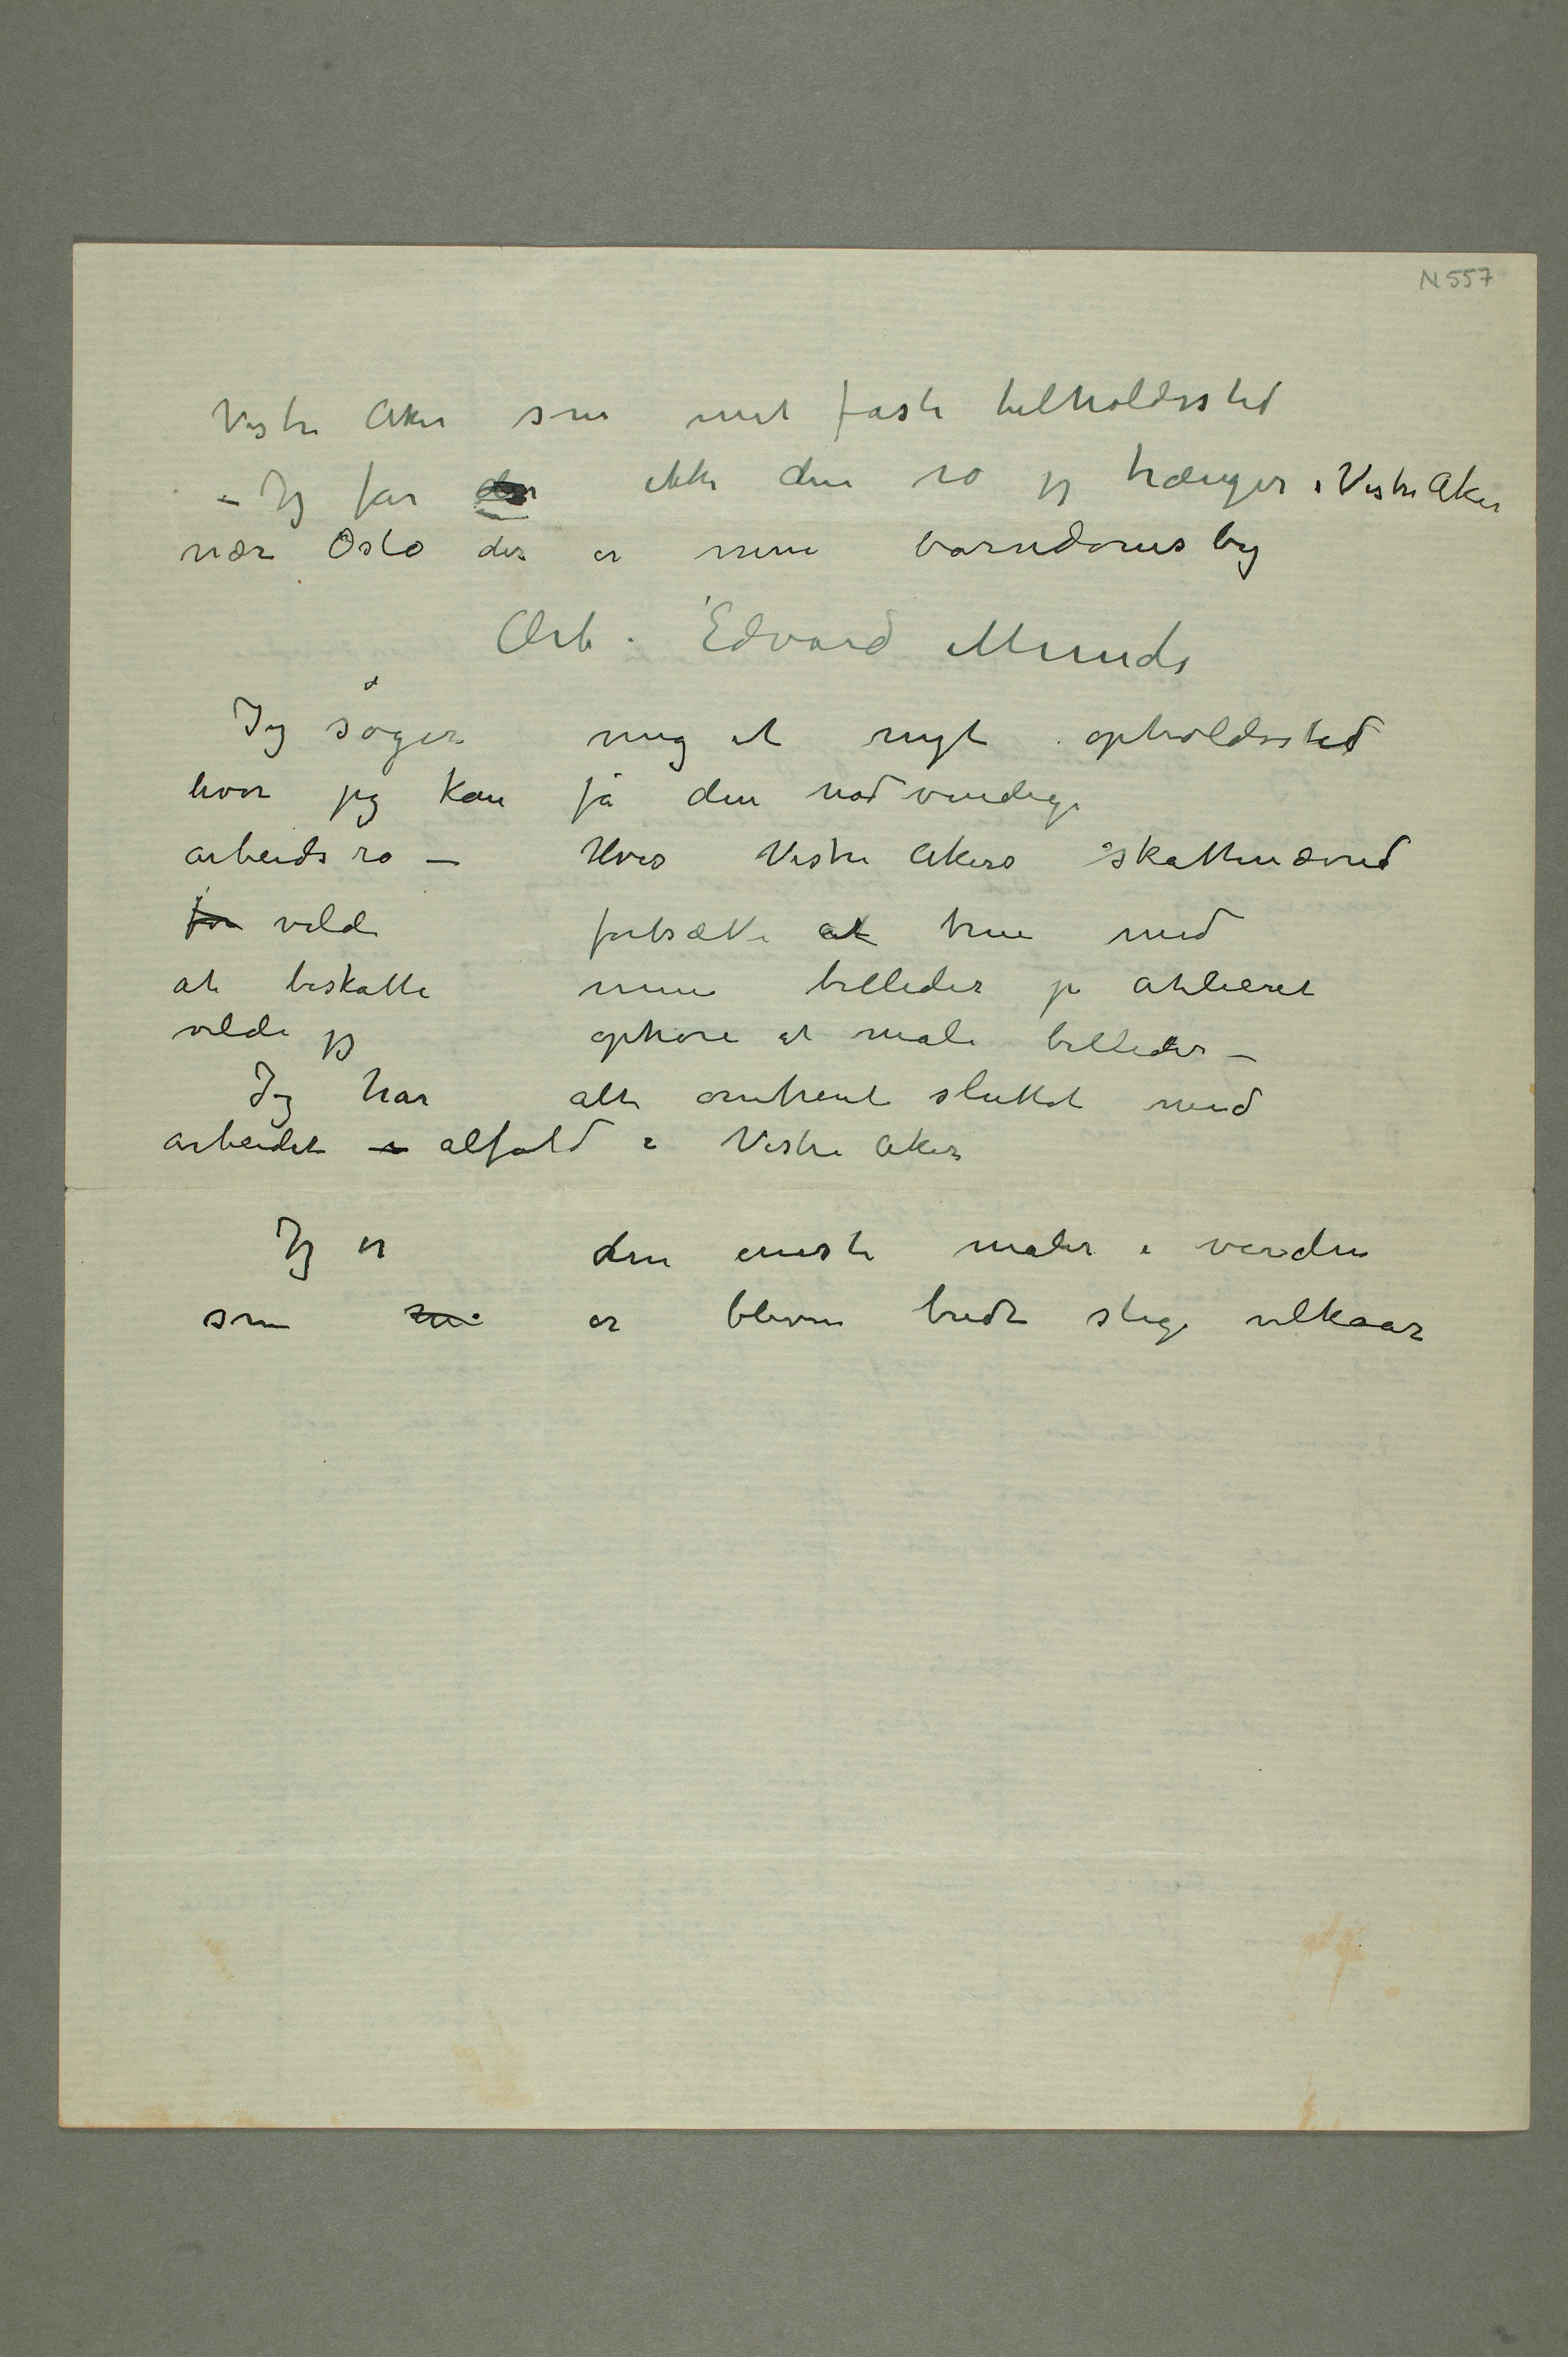 N 557
Vestre Aker som mit faste tilholdssted
– Jeg får der ikke den ro jeg trænger i Vestre Aker
nær Oslo der er min barndomsby
Ærb. Edvard Munch
Jeg søger mig et nyt opholdssted
hvor jeg kan få den nødvendige
arbeidsro – Hvis Vestre Akers skattenævnd
for vilde fortsætte at true med
at beskatte mine billeder på atelieret
vilde jeg ophøre at male billeder –
Jeg har alt omtrent sluttet med
arbeidet i alfald i Vestre Aker
Jeg er den eneste maler i verden
som er bleven budt slige vilkaar